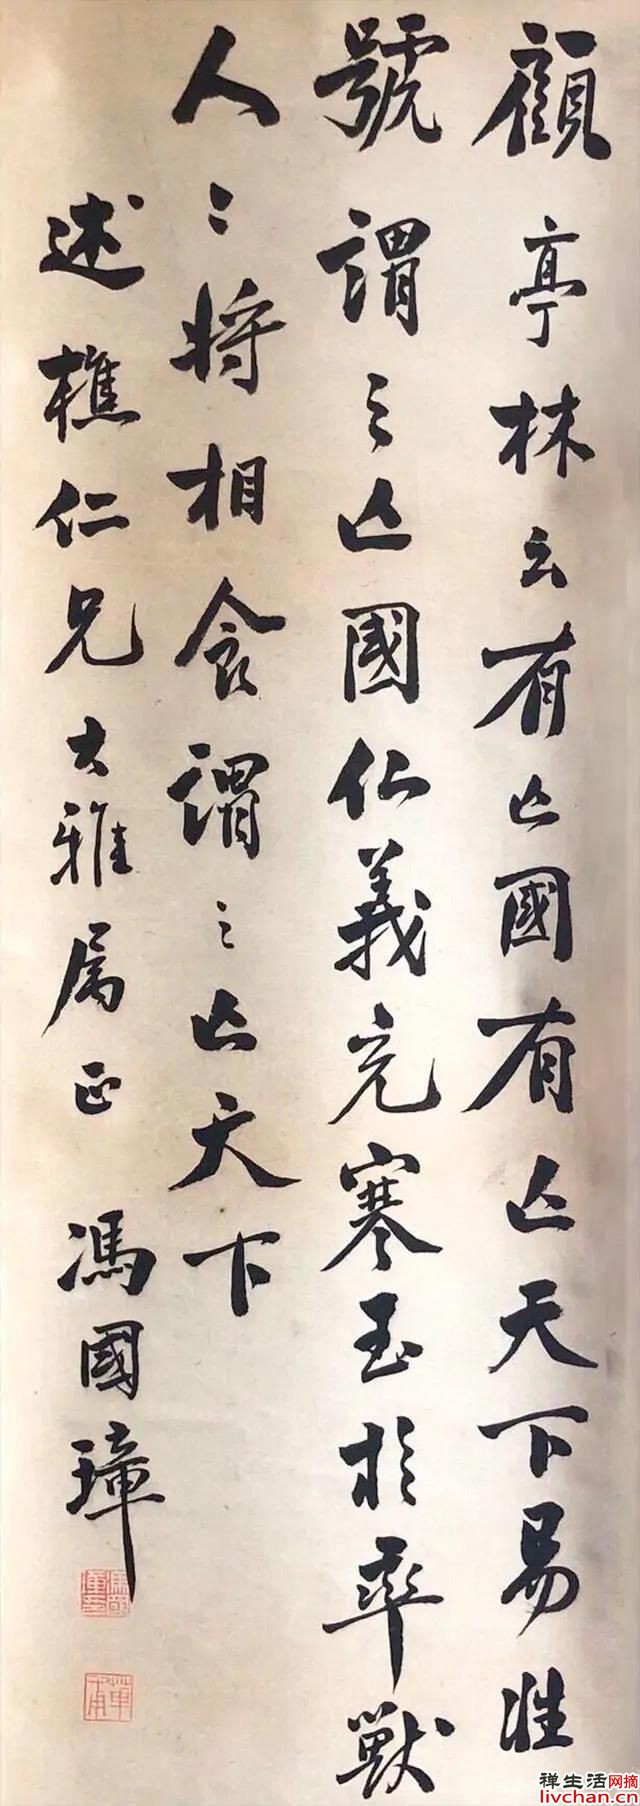 顧亭林云有亡國有亡天下易姓
號謂之亡國仁義充塞至於率獸
人〻將相食謂之亡天下
述樵仁兄大雅属正 馮國璋
馮國璋印
華甫
禅生活网摘
livchan.cn